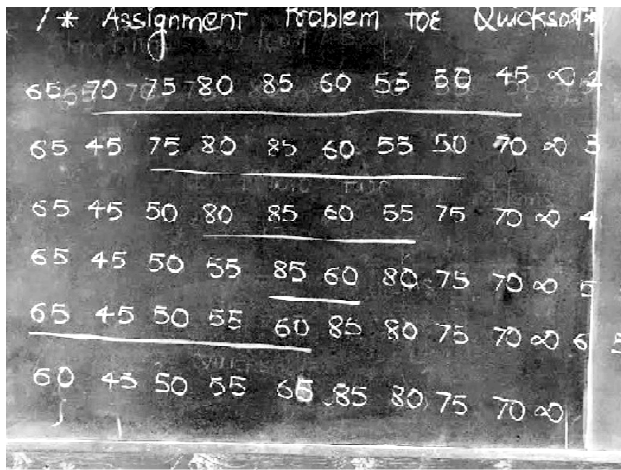 /* Assignment Problem for Quicksort *
65 70 75 80 85 60 55 50 45 ∞ 2
65 45 75 80 85 60 55 50 70 ∞ 3
65 45 50 80 85 60 55 75 70 ∞ 4
65 45 50 55 85 60 80 75 70 ∞ 5
65 45 50 55 60 85 80 75 70 ∞ 6 5
60 45 50 55 65 85 80 75 70 ∞